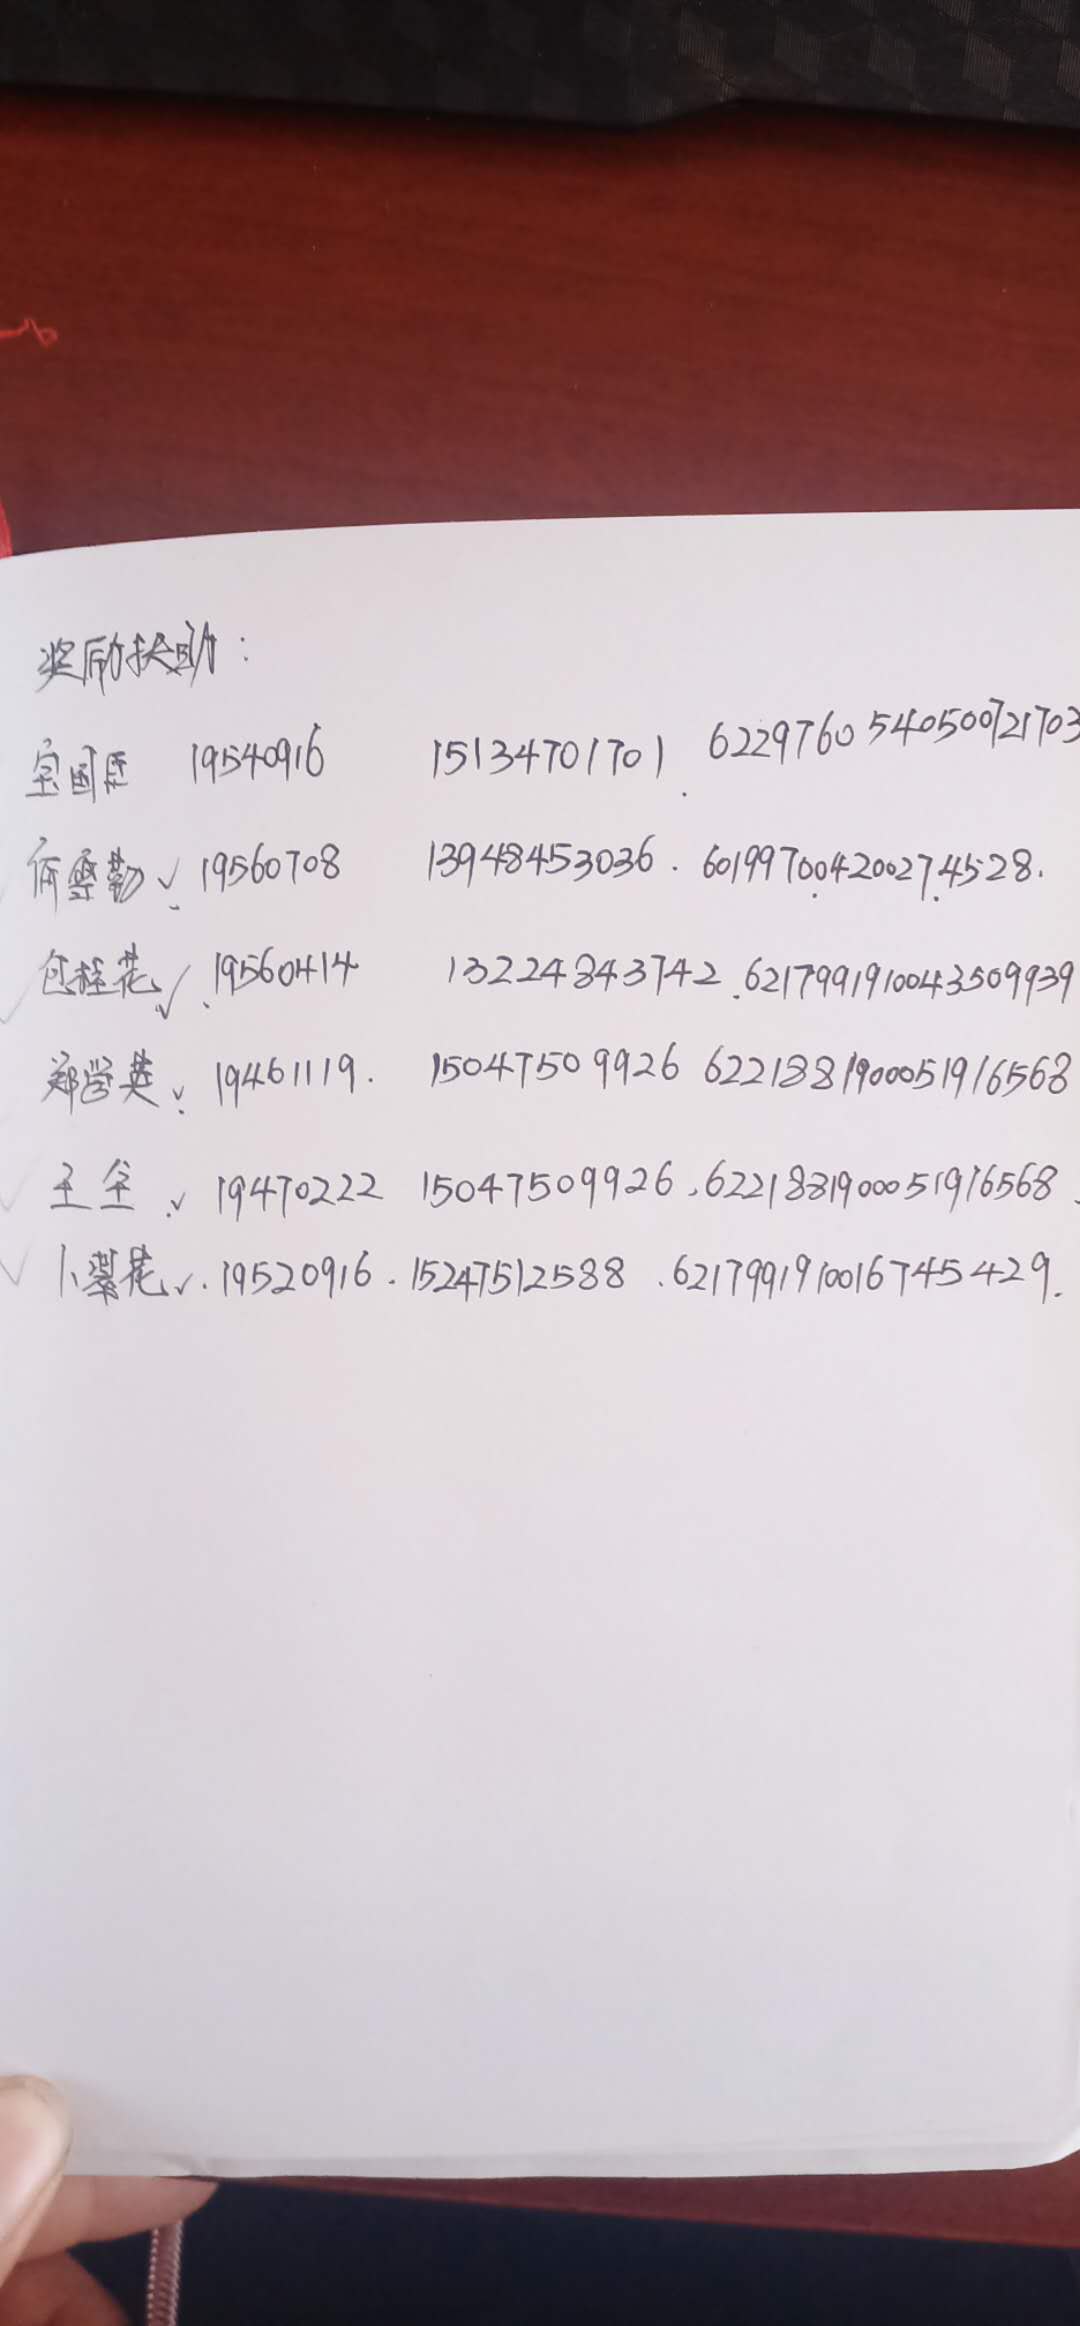 奖励扶助：
宝国臣 19540916 15134701701. 6229760540500721703
何雪勤√ 19560708 13948453036. 601997004200274528.
包桂花√ 19560414 13224843742. 6217991910043509939
郑营英√ 19461119. 15047509926 6221881900051916568
王全√ 19470222 15047509926. 6221881900051916568
卜翠花√. 19520916. 15247512588. 6217991910016745429.